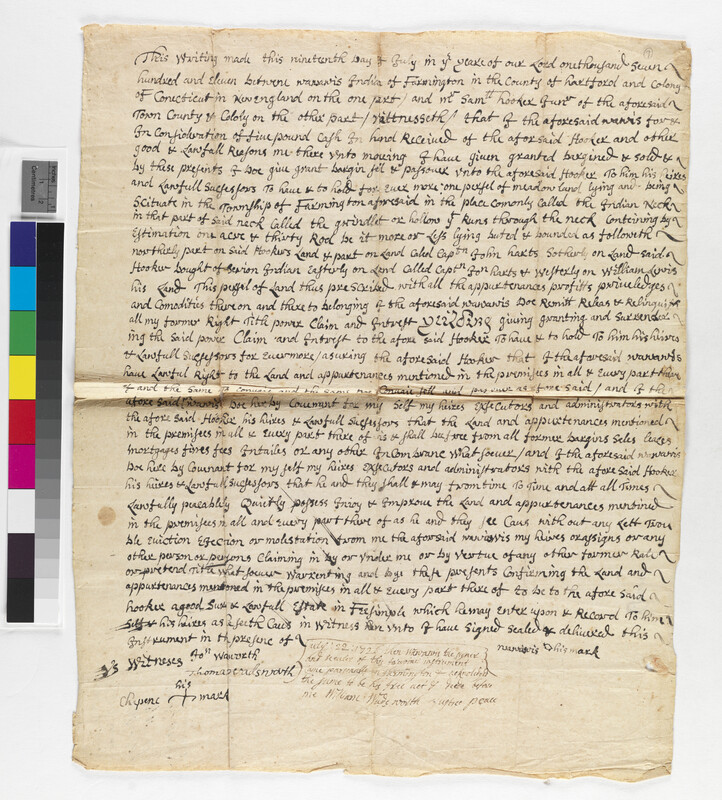 This Writing made this nineteenth Day of July in yᵉ yeare of our Lord one thousand Seven
hundred and Eleven betwene wawawis India of Farmington in the County of hartford and Colony
of Conecticut in Newengland on the one part / and mʳ Samˡˡ hooker Junʳ of the aforesaid
Town County & Colony on the other part / Wittnesseth / that I the aforesaid wawawis for &
In Consideration of five pound Cash In hand Received of the afor said Hooker and other
good & Lawfull Reasons me there unto moving I have given granted bargined & sold &
by these presents I Doe give grant bargin sell & passover unto the aforesaid Hooker To him his heires
and Lawfull Sucessors To have & to hold for Ever more one persel of meadow land lying and being
Scituate in the Township of Farmington aforesaid in the place Comonly Called the Indian Neck
in that part of said neck Called the grindlet or hollow yᵗ Runs through the neck Conteining by
Estimation one acre & thirty Rod be it more or Less lying buted & bounded as followeth
northerly part on said Hookers Land & part on Land Caled Captⁿ John harts Sotherly on Land said
Hooker bought of Indian Easterly on Land Called Captⁿ Jⁿ harts & Westerly on William Lewis
his Land This persal of Land thus preScribed with all the appurtenances profitts priviledges
and Comodities there on and there to belonging I the aforesaid wawawis Doe Remitt Releas & Relinquish
all my former Right Titll power Claim and Intrest giving granting and Surrender
ing the said power Claim and Intrest to the afore said Hooker To have & to hold To him his heires
& Lawfull Sucessors for Evermore / asuring the afore Said Hooker that I the aforesaid wawawis
have Lawful Right to the Land and appurtenances mentioned in the premises in all & Every part there
of and the Same to Convaie and the same Convaie sell and pas over as afore Said / and I the
afore Said wawawis Doe herby Covenant for my Self my heires Execcutors and administrators with
the afore Said Hooker his heires & Lawfull Sucessors that the Land and appurtenances mentioned
in the premises in all & Every part there of is & shall be free from all former bargins Seles Leases
mortgages fines fees Intailes or any other Incombranc What soever / and I the aforesaid wawawis
Doe here by Covenant for my self my heires Execcutors and administrators with the afore Said Hooker
his heires & Lawfull Sucessors that he and they shall & may from time To Time and att all Times
Lawfully peacably Quietly possess Injoy & Improve the Land and appurtenances mentined
in the premises in all and Every part there of as he and they see Caus with out any Lett Trou
ble Eviction Ejection or molestation from me the aforsaid wawawis my heires or assigns or any
other person or persons Claiming in by or under me or by vertue of any other former Sale
or pretend Title What soever Warrenting and by these presents Confirming the Land and
appurtenances mentioned in the premises in all & Every part there of to be to the afore Said
hooker a good Sure & Lawfull Estate in Feesimple which he may Enter upon & Record To him
Self & his heires as he seeth Caus in Witness here unto I have Signed Sealed & delivered this
Instrument in the presence of
wawawis his mark
Witness Joⁿ Waworth
Thomas
his
Chepenc + mark
July 22 1711 then wawawis the signer
and sealer of the above instrument
personally in farmington & acknowledged
the same to be his free act & Deed before
me William Wadsworth Justice peace